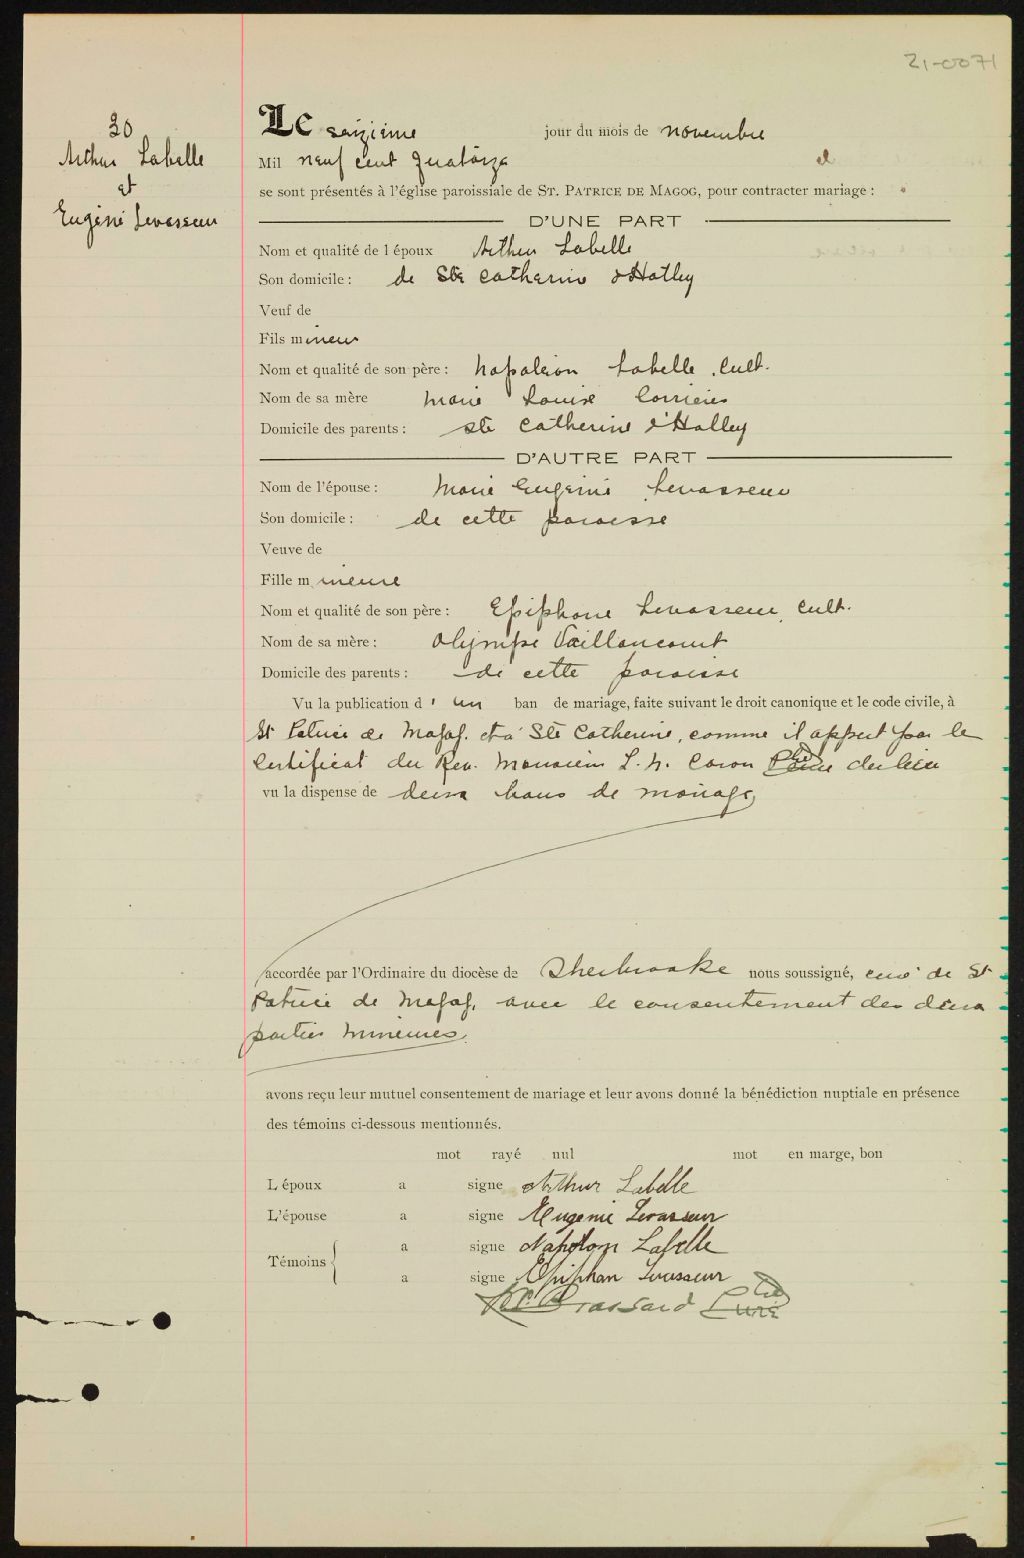 21-0071
30
Arthur Labelle
et
Eugénie Levasseur
Le seizième jour du mois de novembre
Mil neuf cent quatorze et
se sont présentés à l'église paroissiale de ST. PATRICE DE MAGOG, pour contracter mariage :
D'UNE PART
Nom et qualité de l époux Arthur Labelle
Son domicile : de Ste Catherine d'Hatley
Veuf de
Fils mineur
Nom et qualité de son père : Napoléon Labelle, Cult.
Nom de sa mère Marie Louise
Domicile des parents : Ste Catherine d'Hatley
D'AUTRE PART
Nom de l'épouse : Marie Eugénie Levasseur
Son domicile : de cette paroisse
Veuve de
Fille mineure
Nom et qualité de son père : Epiphane Levasseur, Cult.
Nom de sa mère : Olympe Vaillancourt
Domicile des parents : de cette paroisse
Vu la publication d'un ban de mariage, faite suivant le droit canonique et le code civile, à
St Patrice de Magog. et à Ste Catherine, comme il appert par le
Certificat du Rev. Monsieur L. N. Caron Ptre Curé du lieu
vu la dispense de deux bans de mariage,
accordée par l'Ordinaire du diocèse de Sherbrooke nous soussigné, curé de St
Patrice de Magog, avec le consentement des deux
parties mineures.
avons reçu leur mutuel consentement de mariage et leur avons donné la bénédiction nuptiale en présence
des témoins ci-dessous mentionnés.
mot rayé nul mot en marge, bon
L époux a signe Arthur Labelle
L'épouse a signe Eugenie Levasseur
Témoins { a signe Napoleon Labelle
a signe Epiphan Levasseur
Brassard Ptre Curé